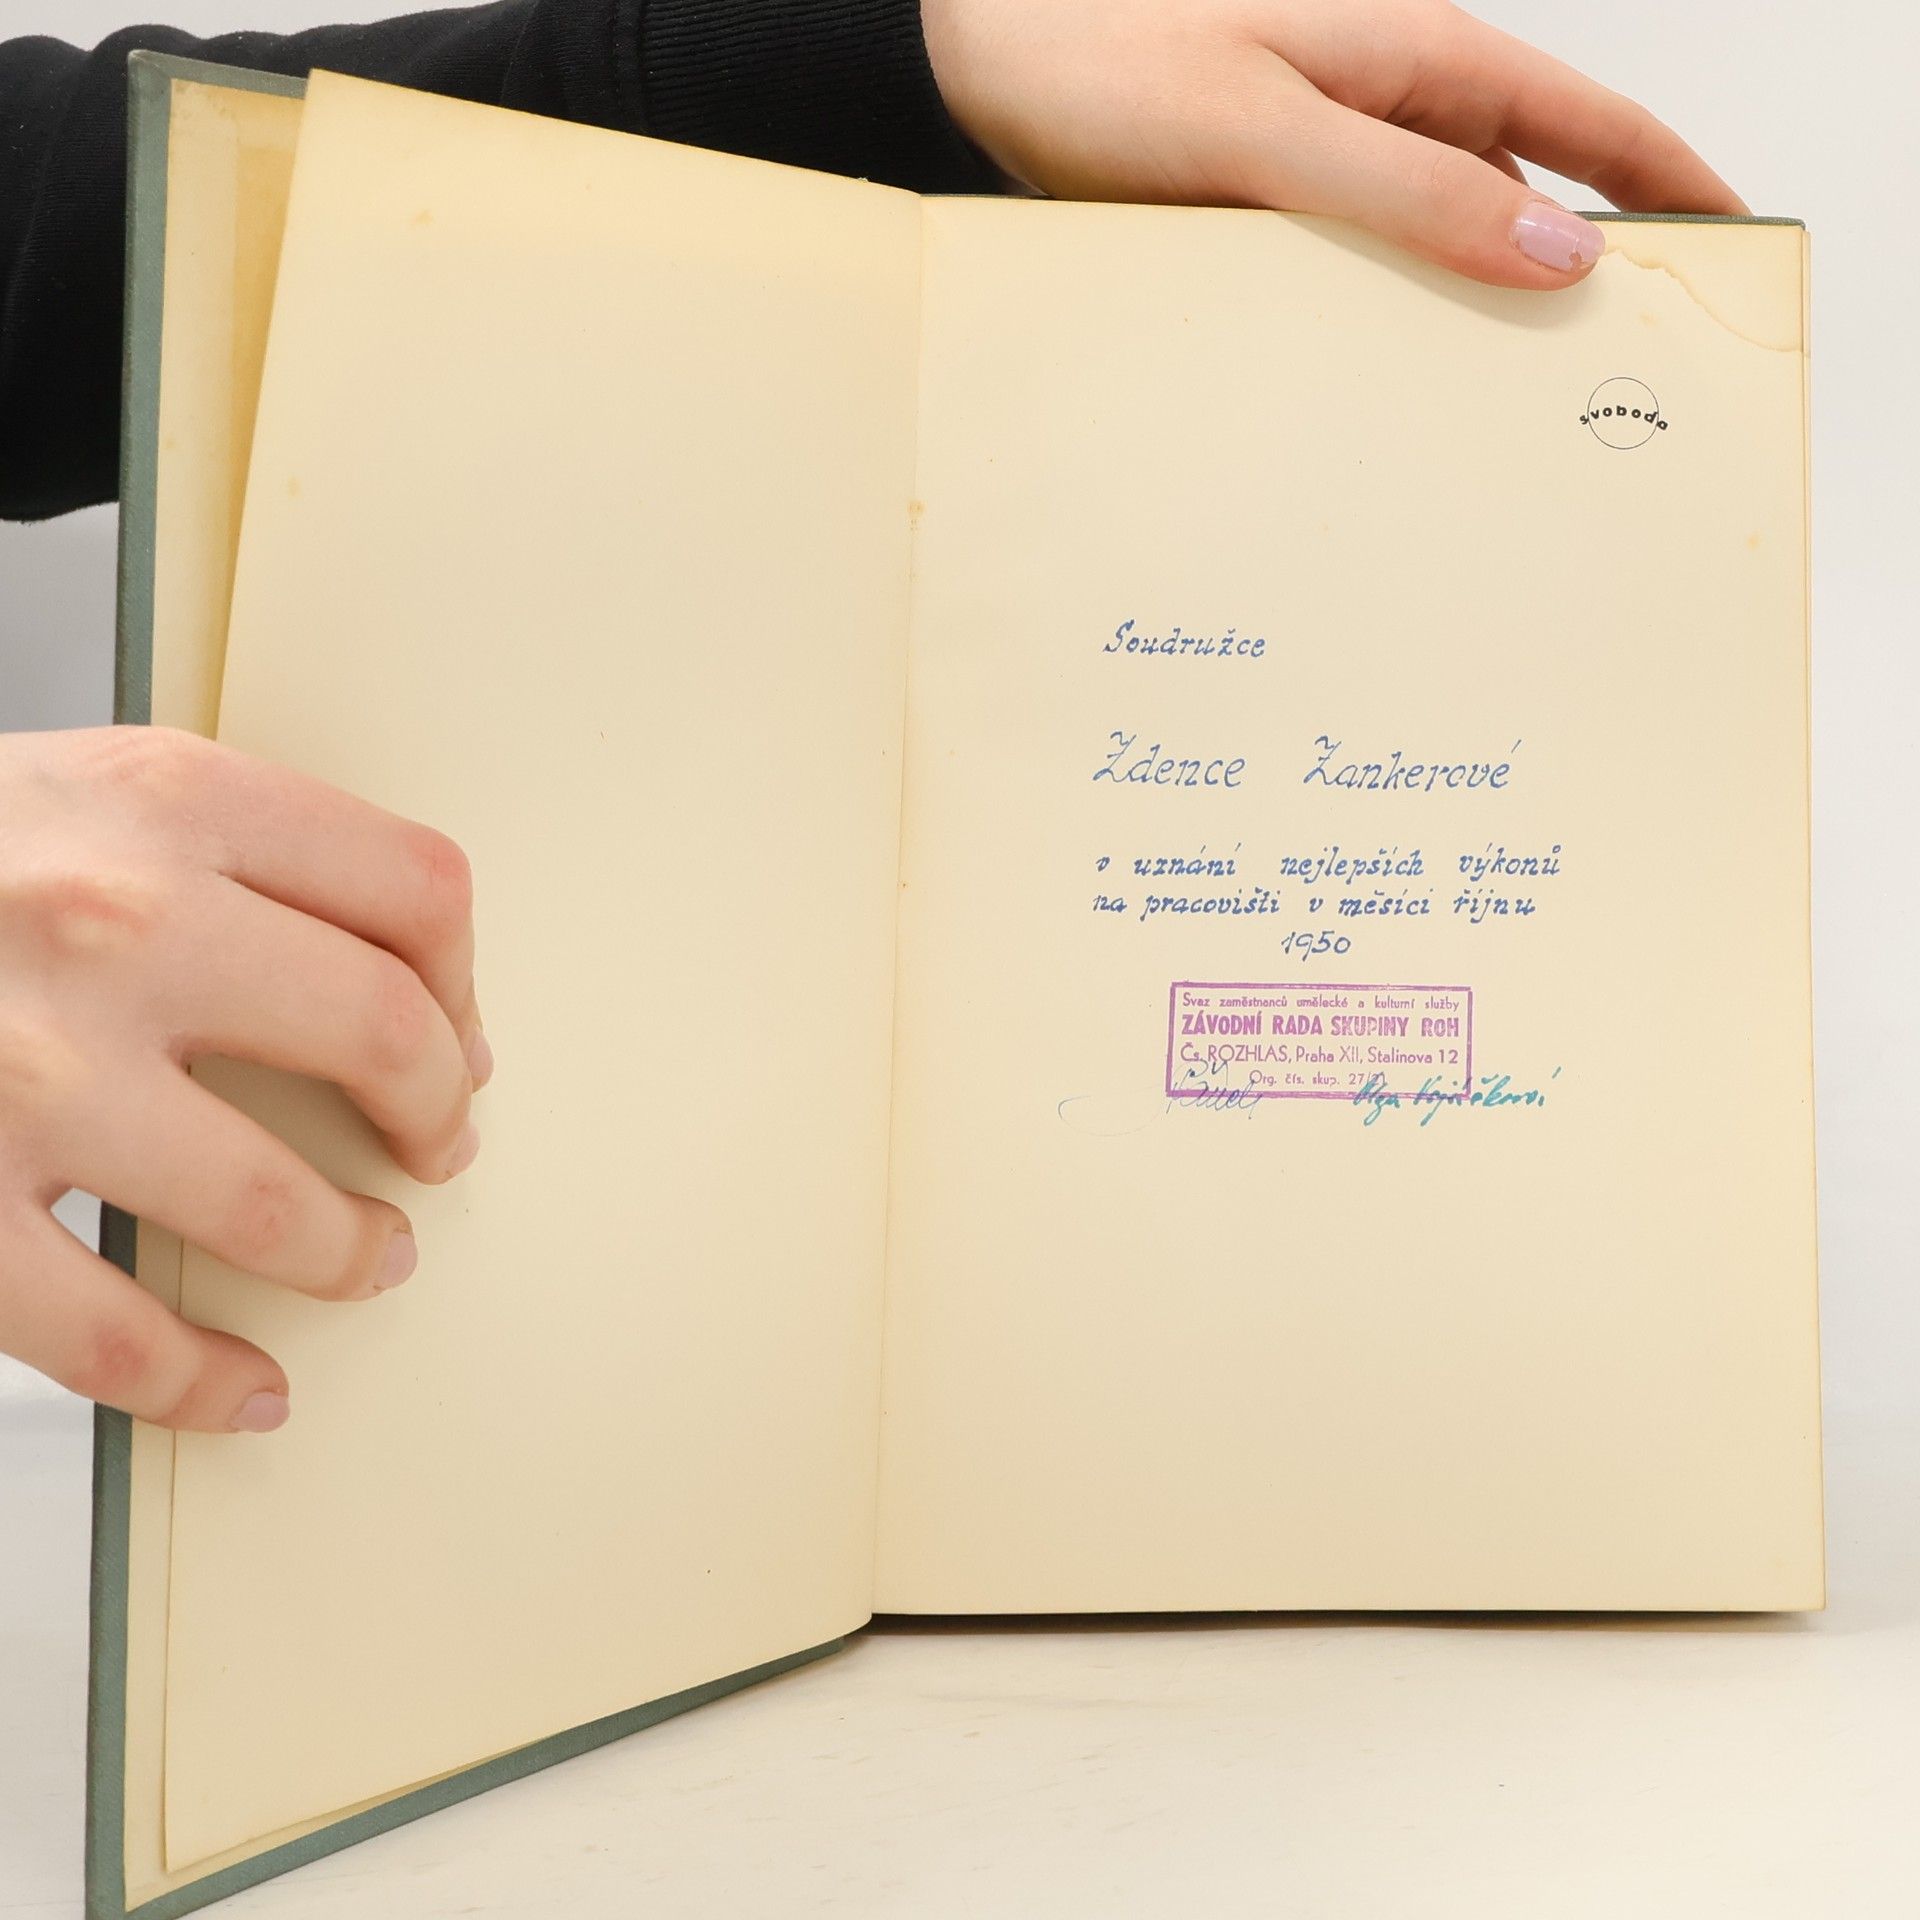 svoboda
Soudružce
Zdence Zankerové
v uznání nejlepších výkonů
na pracovišti v měsíci říjnu
1950
Svaz zaměstnanců umělecké a kulturní služby
ZÁVODNÍ RADA SKUPINY ROH
Čs. ROZHLAS, Praha XII, Stalinova 12
Org. čís. skup. 27/
Olga